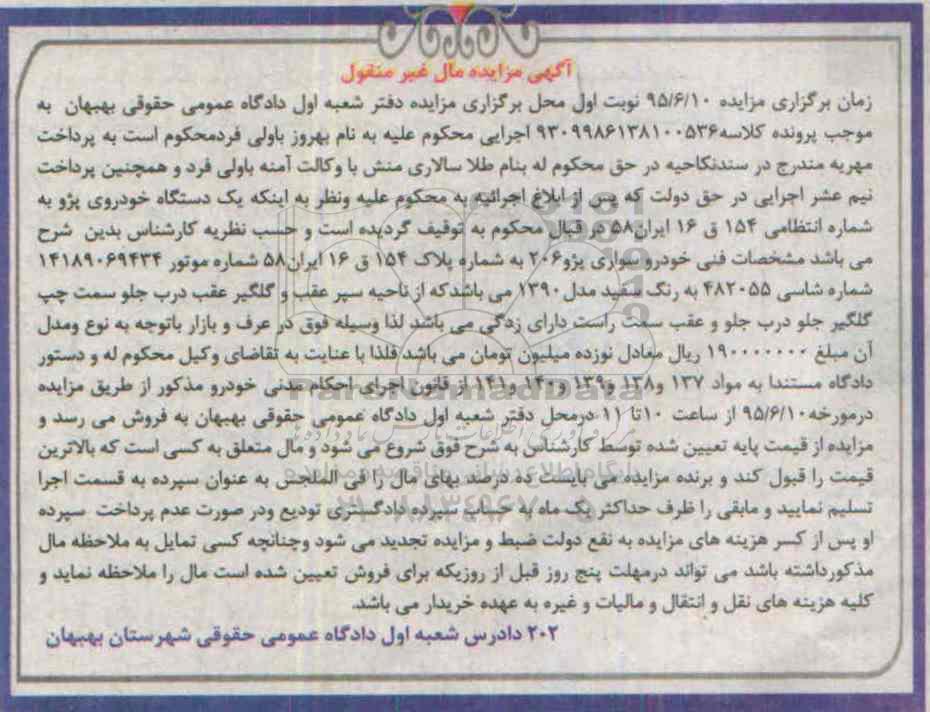 آگهی مزایده مال غیر منقول
زمان برگزاری مزایده ۹۵/۶/۱۰ نوبت اول محل برگزاری مزایده دفتر شعبه اول دادگاه عمومی حقوقی بهبهان به
موجب پرونده کلاسه۹۳۰۹۹۸۶۱۳۸۱۰۰۵۳۶ اجرایی محکوم علیه به نام بهروز باولی فردمحکوم است به پرداخت
مهریه مندرج در سندنکاحیه در حق محکوم له بنام طلا سالاری منش با وکالت آمنه باولی فرد و همچنین پرداخت
نیم عشر اجرایی در حق دولت که پس از ابلاغ اجرائیه به محکوم علیه ونظر به اینکه یک دستگاه خودروی پژو به
شماره انتظامی ۱۵۴ ق ۱۶ ایران۵۸ در قبال محکوم به توقیف گردیده است و حسب نظریه کارشناس بدین شرح
می باشد مشخصات فنی خودرو سواری پژو۲۰۶ به شماره پلاک ۱۵۴ ق ۱۶ ایران۵۸ شماره موتور ۱۴۱۸۹۰۶۹۴۳۴
شماره شاسی ۴۸۲۰۵۵ به رنگ سفید مدل۱۳۹۰ می باشدکه از ناحیه سپر عقب و گلگیر عقب درب جلو سمت چپ
گلگیر جلو درب جلو و عقب سمت راست دارای زدگی می باشد لذا وسیله فوق در عرف و بازار باتوجه به نوع ومدل
آن مبلغ ۱۹۰۰۰۰۰۰۰ ریال معادل نوزده میلیون تومان می باشد فلذا با عنایت به تقاضای وکیل محکوم له و دستور
دادگاه مستندا به مواد ۱۳۷ و۱۳۸ و۱۳۹ و۱۴۰ و۱۴۱ از قانون اجرای احکام مدنی خودرو مذکور از طریق مزایده
درمورخه۹۵/۶/۱۰ از ساعت ۱۰تا ۱۱ درمحل دفتر شعبه اول دادگاه عمومی حقوقی بهبهان به فروش می رسد و
مزایده از قیمت پایه تعیین شده توسط کارشناس به شرح فوق شروع می شود و مال متعلق به کسی است که بالاترین
قیمت را قبول کند و برنده مزایده می بایست ده درصد بهای مال را فی المجلس به عنوان سپرده به قسمت اجرا
تسلیم نمایید و مابقی را ظرف حداکثر یک ماه به حساب سپرده دادگستری تودیع ودر صورت عدم پرداخت سپرده
او پس از کسر هزینه های مزایده به نفع دولت ضبط و مزایده تجدید می شود وچنانچه کسی تمایل به ملاحظه مال
مذکورداشته باشد می تواند درمهلت پنج روز قبل از روزیکه برای فروش تعیین شده است مال را ملاحظه نماید و
کلیه هزینه های نقل و انتقال و مالیات و غیره به عهده خریدار می باشد.
۲۰۲ دادرس شعبه اول دادگاه عمومی حقوقی شهرستان بهبهان
ParsNamadData